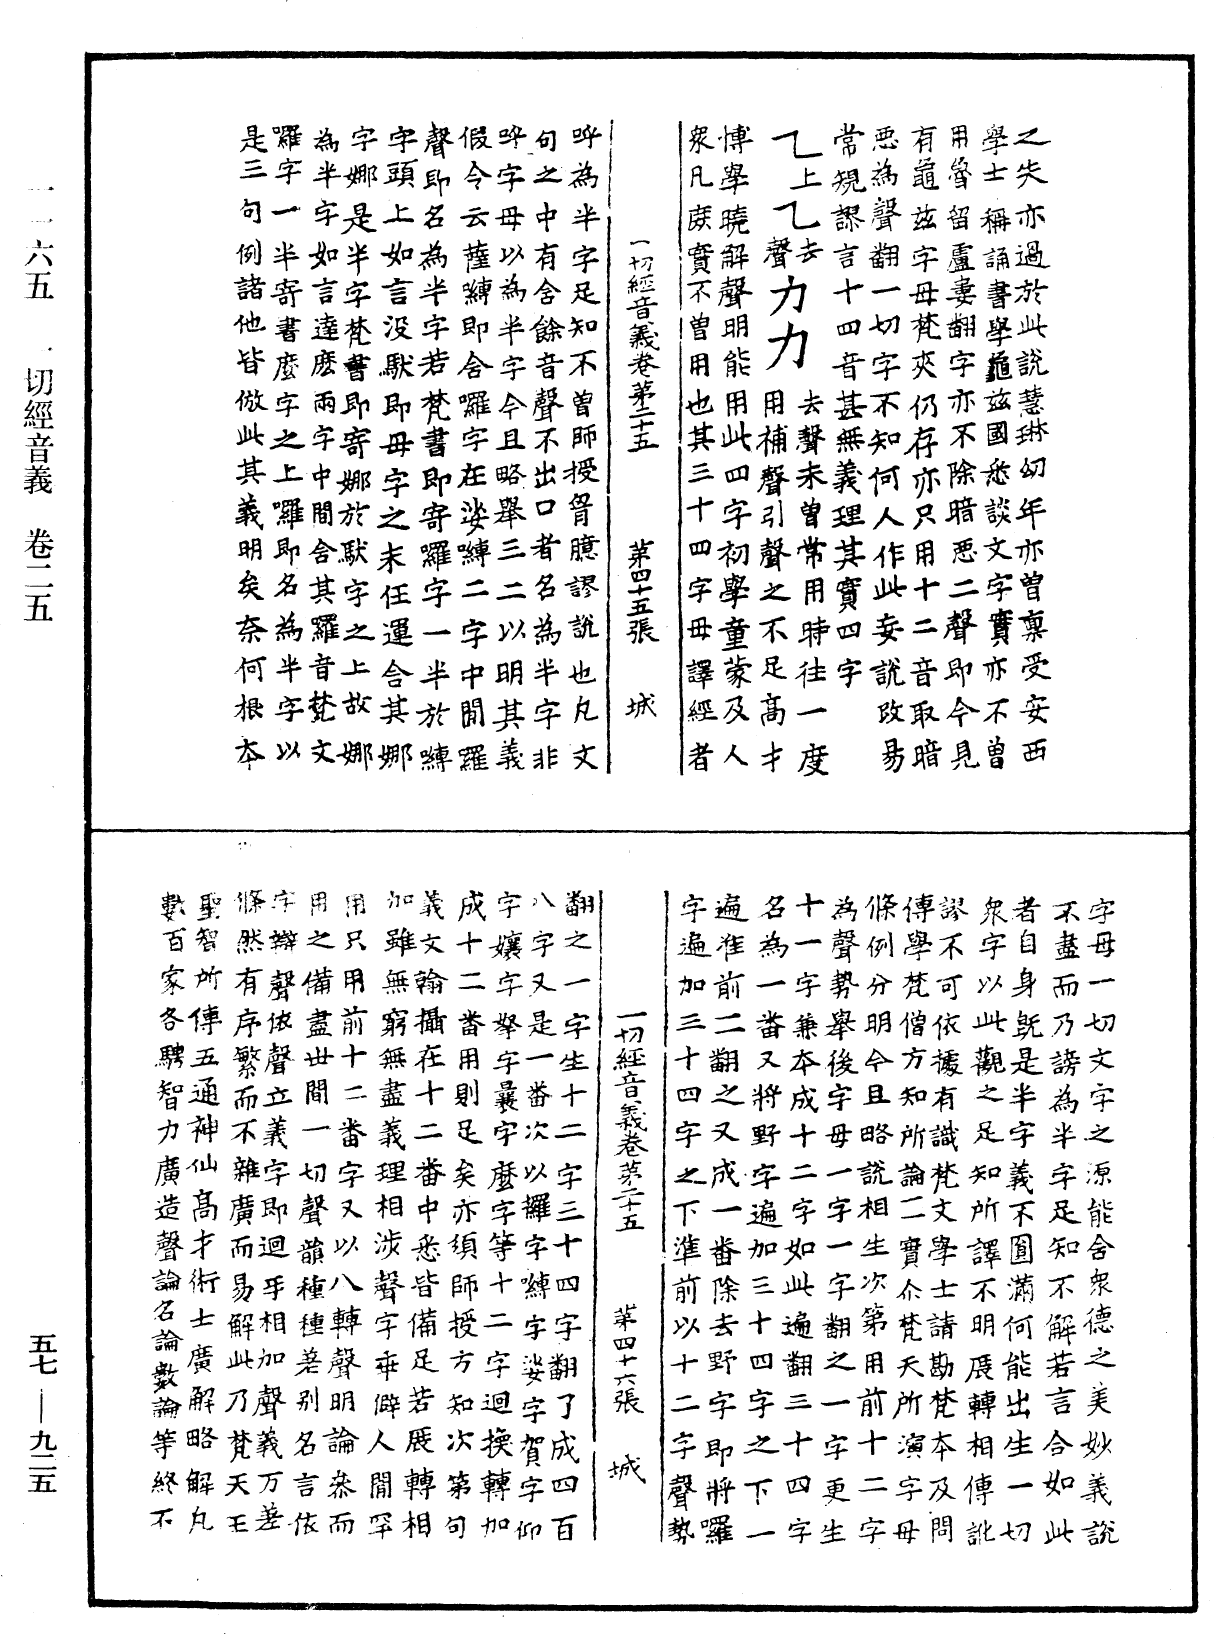 之失亦過於此說慧琳幼年亦曾稟受安西
學士稱誦書學龜茲國悉談文字實亦不曾
用魯留盧婁翻字亦不除暗惡二聲即今見
有龜茲字母梵夾仍存亦只用十二音取暗
惡為聲翻一切字不知何人作此妄說改易
常規謬言十四音甚無義理其實四字
乙上乙去聲力力去聲未曾常用時往一度
用補聲引聲之不足高才
博學曉解聲明能用此四字初學童蒙及人
眾凡庶實不曾用也其三十四字母譯經者
一切經音義卷第二十五 第四十五張 城
呼為半字足知不曾師授胷臆謬說也凡文
句之中有含餘音聲不出口者名為半字非
呼字母以為半字今且略舉三二以明其義
假令云薩嚩即含囉字在娑嚩二字中間羅
聲即名為半字若梵書即寄囉字一半於嚩
字頭上如言沒馱即母字之末任運合其娜
字娜是半字梵書即寄娜於馱字之上故娜
為半字如言達麽兩字中間含其羅音梵文
囉字一半寄書麽字之上囉即名為半字以
是三句例諸他皆倣此其義明矣奈何根本
字母一切文字之源能含眾德之美妙義說
不盡而乃謗為半字足知不解若言合如此
者自身既是半字義不圓滿何能出生一切
眾字以此觀之足知所譯不明展轉相傳訛
謬不可依據有識梵文學士請勘梵本及問
傳學梵僧方知所論一二實尒梵天所演字母
條例分明今且略說相生次第用前十二字
為聲勢舉後字母一字一字翻之一字更生
十一字兼本成十二字如此遍翻三十四字
名為一番又將野字遍加三十四字之下一
遍准前二翻之又成一番除去野字即將囉
字遍加三十四字之下準前以十二字聲勢
一切經音義卷第二十五 第四十六張 城
翻之一字生十二字三十四字翻了成四百
八字又是一番次以攞字嚩字娑字賀字仰
字孃字拏字曩字麼字等十二字迴換轉加
成十二番用則足矣亦須師授方知次第句
義文翰攝在十二番中悉皆備足若展轉相
加雖無窮無盡義理相涉聲字乖僻人間罕
用只用前十二番字又以八轉聲明論叅而
用之備盡世間一切聲韻種種差別名言依
字辯聲依聲立義字即迴乎相加聲義万差
條然有序繁而不雜廣而易解此乃梵天王
聖智所傳五通神仙高才術士廣解略解凡
數百家各騁智力廣造聲論名論數論等終不
一一六五 一切經音義 卷二五
五七—九二五